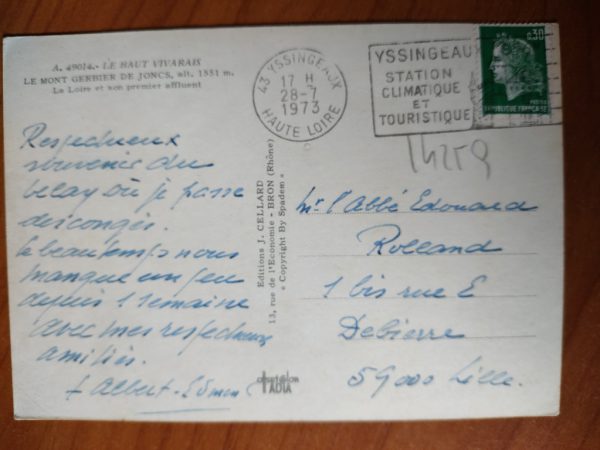 A. 49014. - LE HAUT VIVARAIS
LE MONT GERBIER DE JONCS, alt. 1551 m.
La Loire et son premier affluent
43 YSSINGEAUX
17 H
28-7
1973
HAUTE LOIRE
YSSINGEAUX
STATION
CLIMATIQUE
ET
TOURISTIQUE
0,30
POSTES
REPUBLIQUE FRANÇAISE
14259
Respectueux
souvenir du
Velay où je passe
des congés.
Le beau temps nous
manque un peu
depuis 1 semaine
Avec mes respectueuses
amitiés.
+ Albert
Editions J. CELLARD
13, rue de l'Economie - BRON (Rhône)
« Copyright By Spadem »
Mr l'Abbé Edouard
Rolland
1 bis rue E
Debierre
59000 Lille.